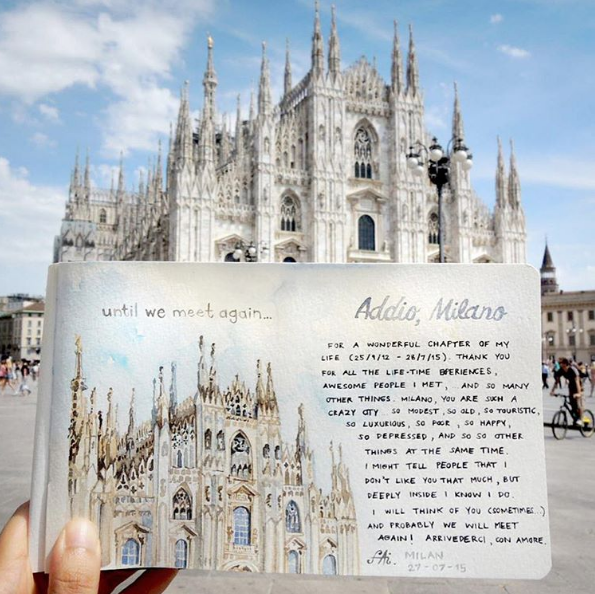 until we meet again...
Addio, Milano
FOR A WONDERFUL CHAPTER OF MY
LIFE (25/9/12 - 28/7/15). THANK YOU
FOR ALL THE LIFE-TIME EXPERIENCES,
AWESOME PEOPLE I MET, .. AND SO MANY
OTHER THINGS. MILANO, YOU ARE SUCH A
CRAZY CITY.. SO MODEST, SO OLD, SO TOURISTIC,
SO LUXURIOUS, SO POOR, SO HAPPY,
SO DEPRESSED, AND SO SO OTHER
THINGS AT THE SAME TIME.
I MIGHT TELL PEOPLE THAT I
DON'T LIKE YOU THAT MUCH, BUT
DEEPLY INSIDE I KNOW I DO.
I WILL THINK OF YOU (SOMETIMES...)
AND PROBABLY WE WILL MEET
AGAIN! ARRIVEDERCI, CON AMORE.
MILAN
27-07-15